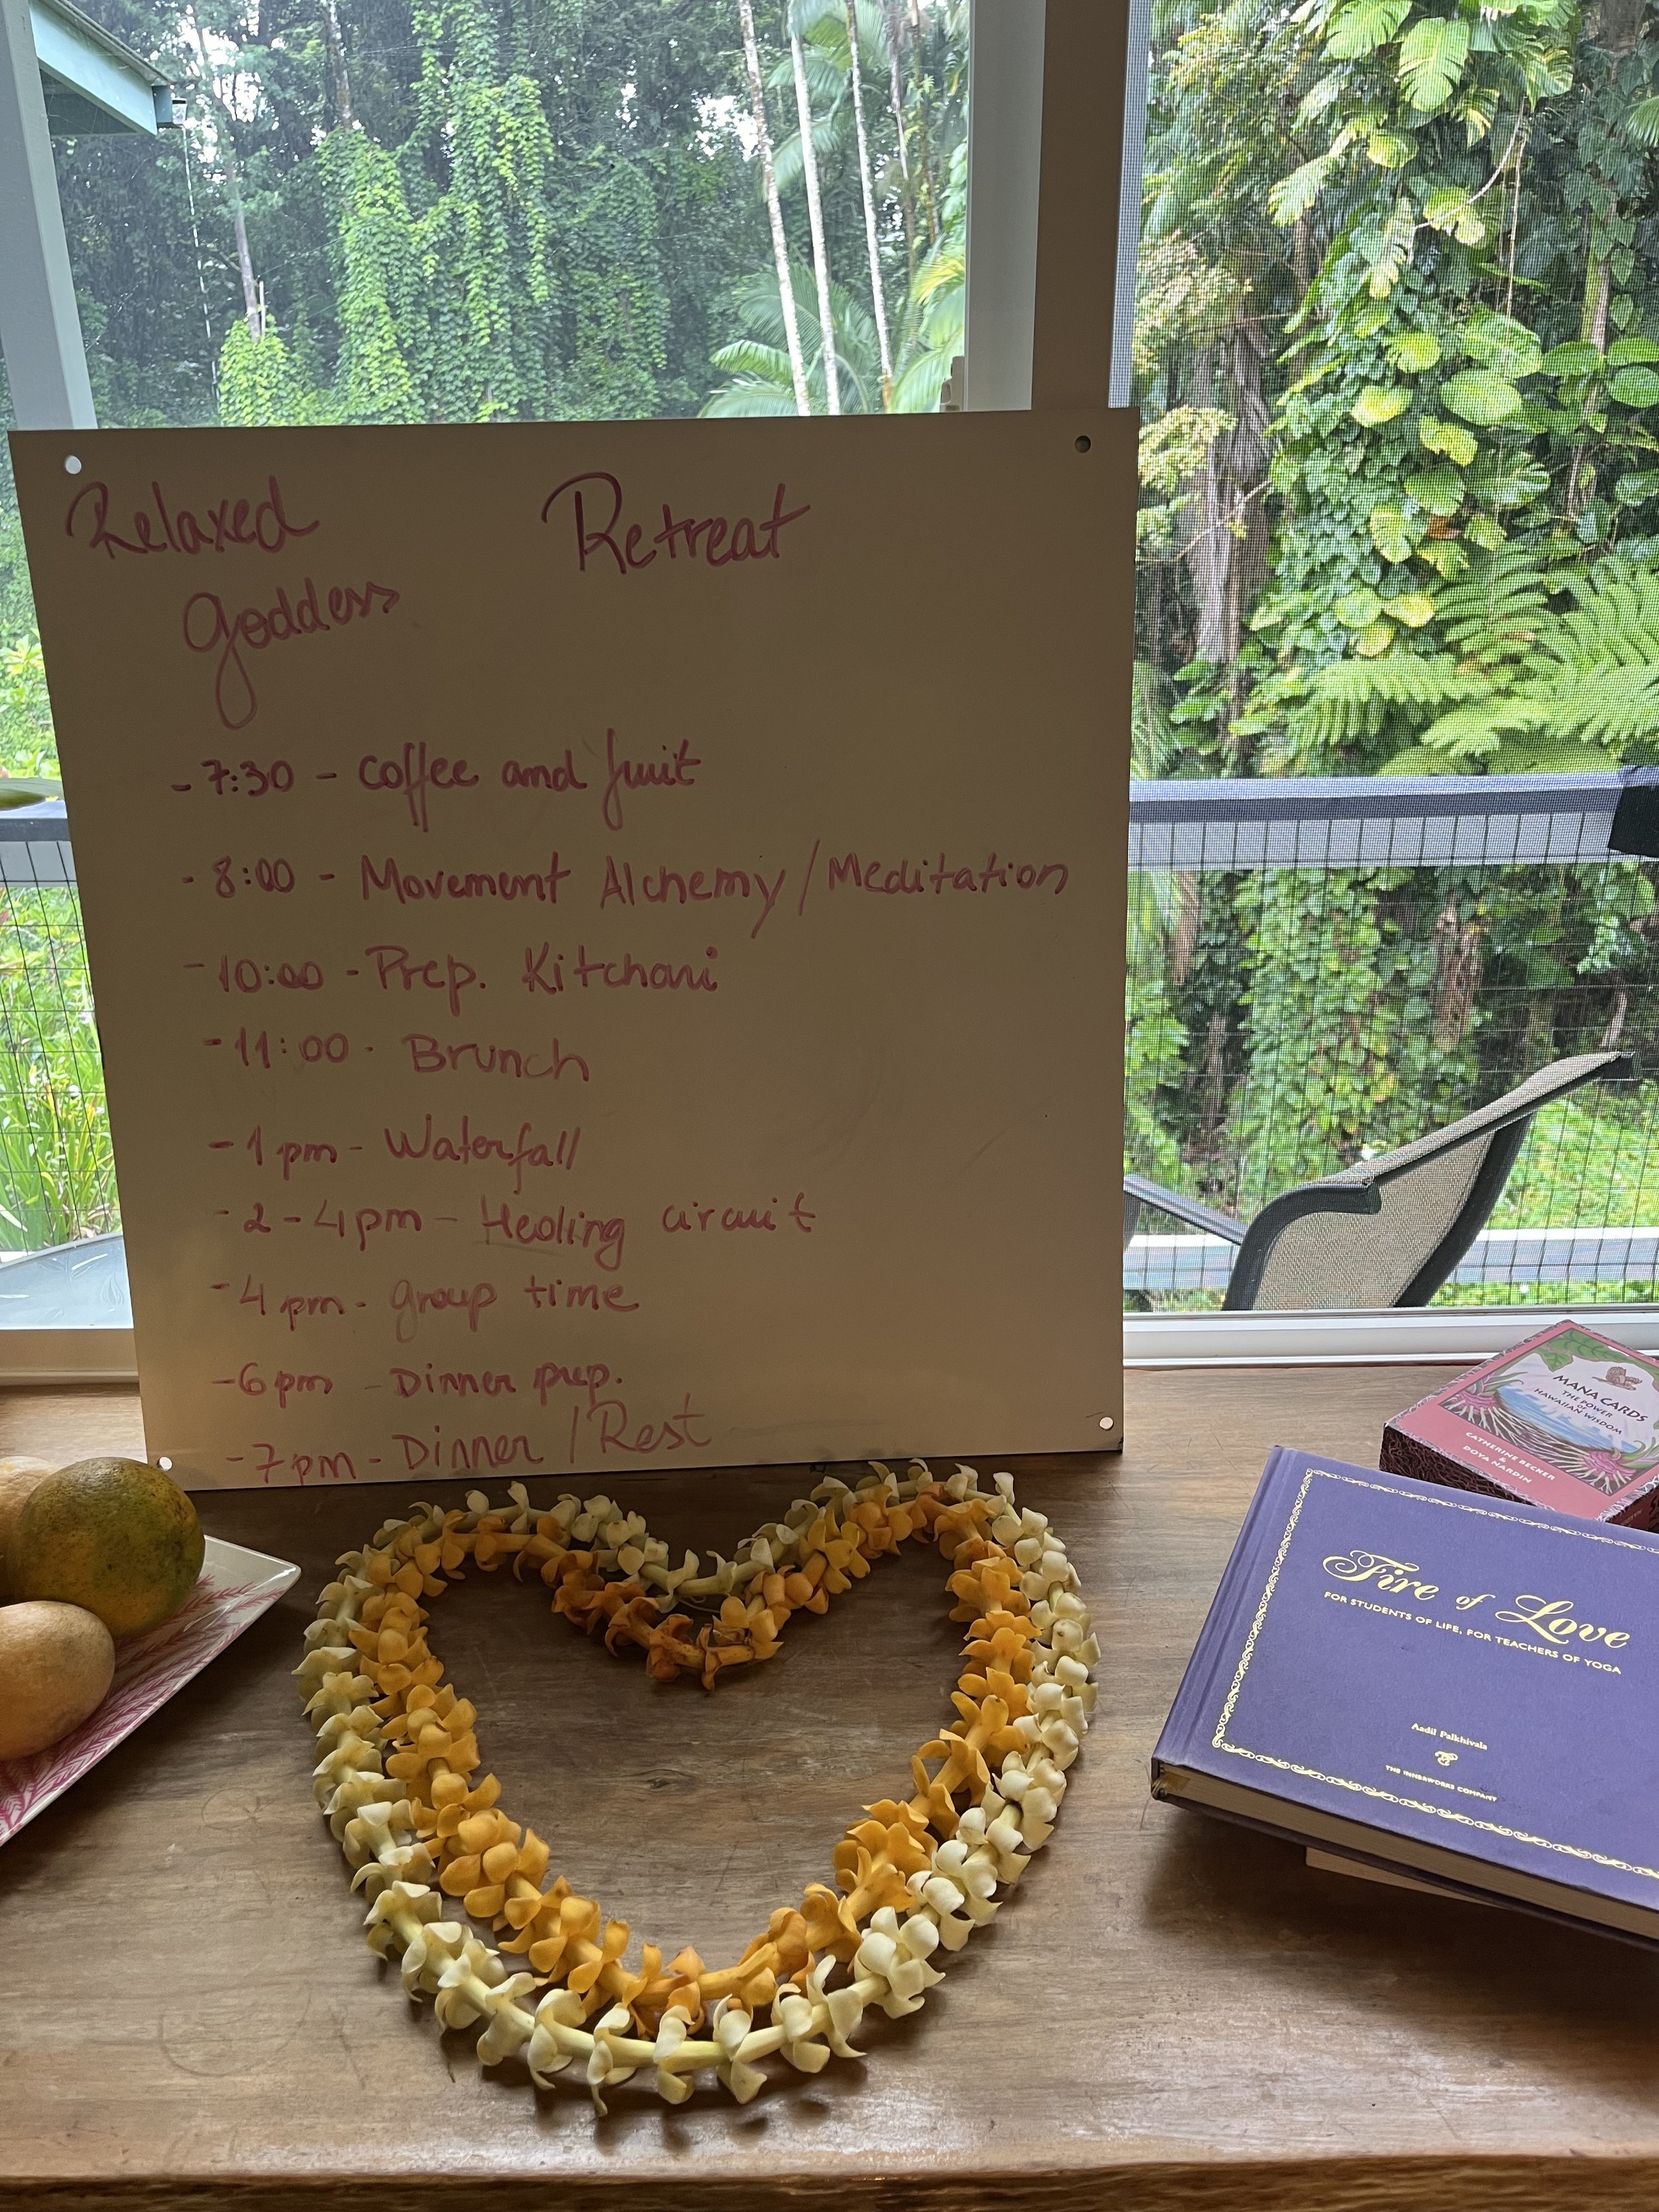 Relaxed Retreat
Goddess
- 7:30 - Coffee and fruit
- 8:00 - Movement Alchemy / Meditation
- 10:00 - Prep. Kitchari
- 11:00 - Brunch
- 1 pm - Waterfall
- 2 - 4 pm - Healing circuit
- 4 pm - group time
- 6 pm - Dinner prep.
- 7 pm - Dinner / Rest
MANA CARDS
THE POWER
OF
HAWAIIAN WISDOM
CATHERINE BECKER
&
DOYA NARDIN
Fire of Love
FOR STUDENTS OF LIFE, FOR TEACHERS OF YOGA
Aadil Palkhivala
THE INNERWORKS COMPANY